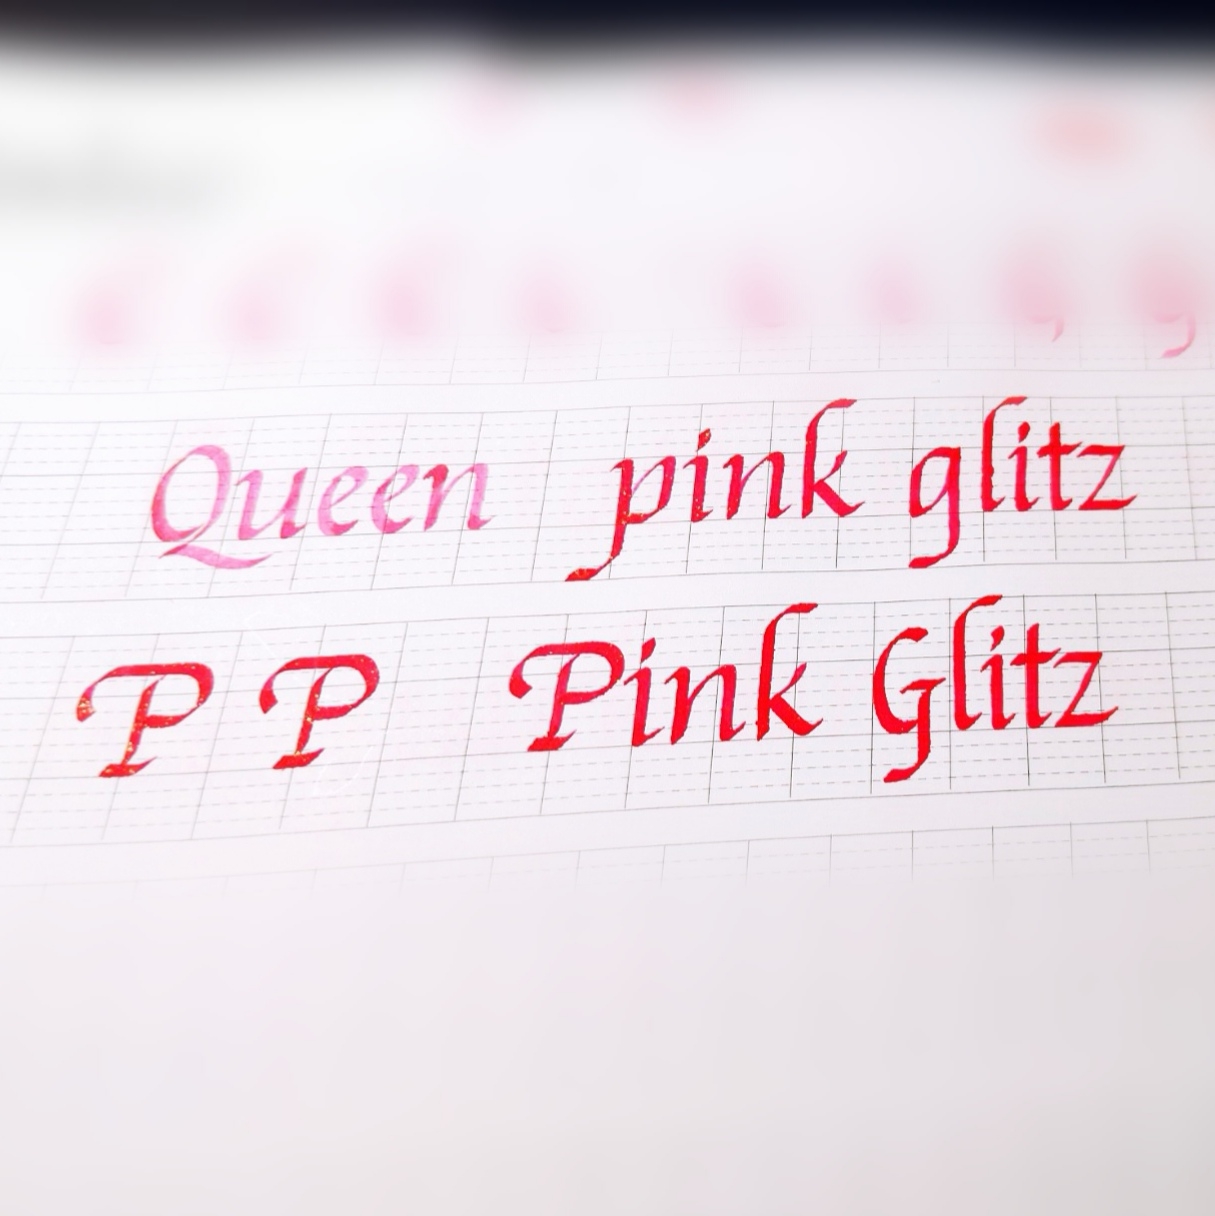 Queen pink glitz
P P Pink Glitz